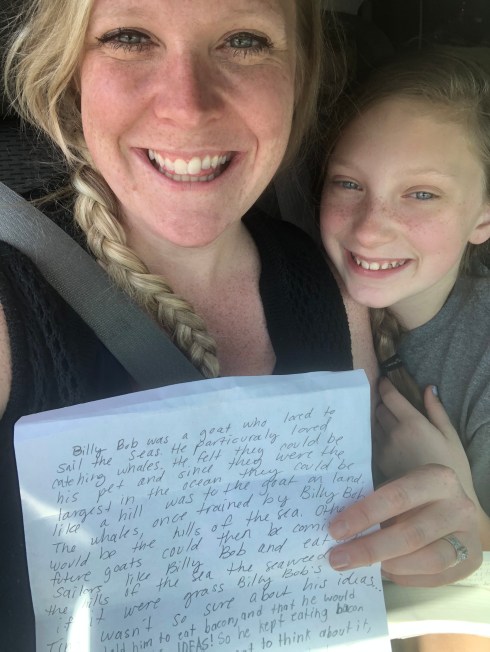 Billy Bob was a goat who loved to
sail the seas. He particuraly loved
catching whales. He felt they could be
his pet and since they were the
largest in the ocean they could be
like a hill was to the goat on land.
The whales, once trained by Billy Bob,
would be the hills of the sea. Other
future goats could then be coming
sailors like Billy Bob and eat
the hills of the sea the seaweed
if it were grass. Billy Bob's
wasn't so sure about his ideas.
told him to eat bacon, and that he would
IDEAS! So he kept eating bacon
to think about it,